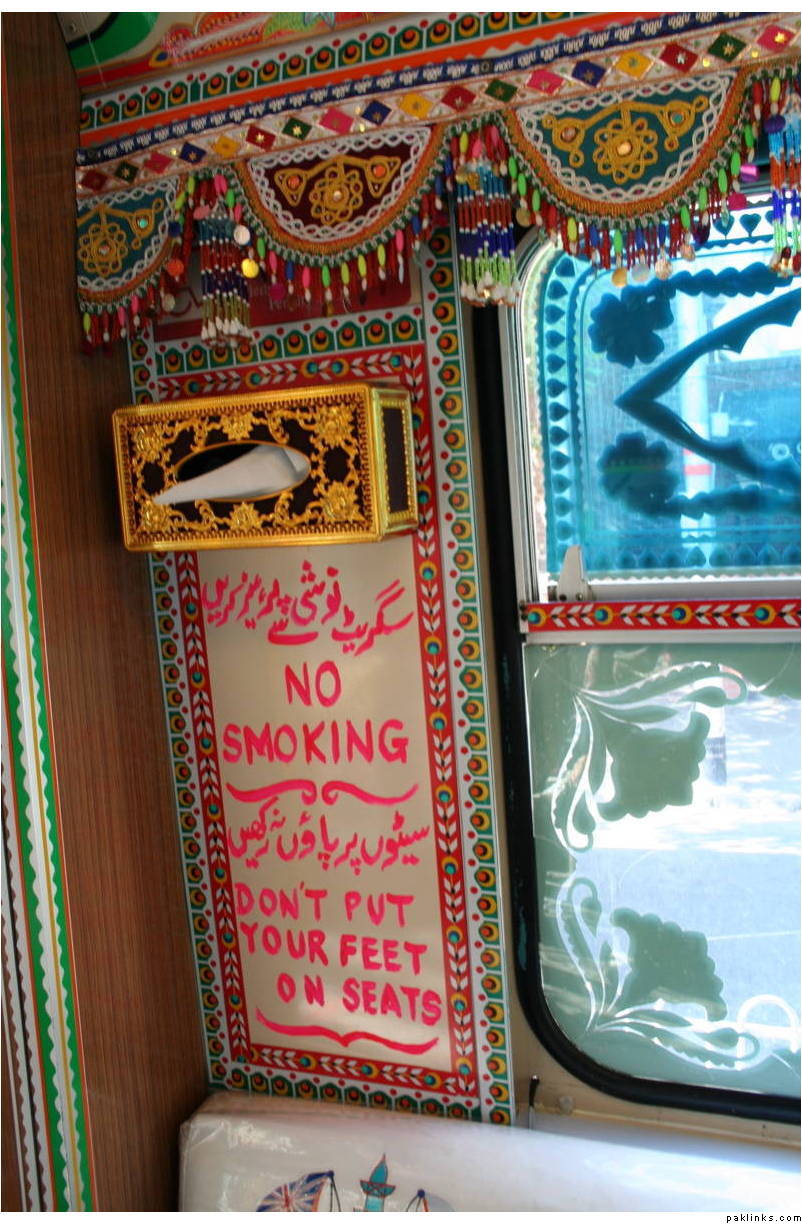 سگریٹ نوشی سے پرہیز کریں
NO
SMOKING
سیٹوں پر پاؤں نہ رکھیں
DON'T PUT
YOUR FEET
ON SEATS
paklinks.com